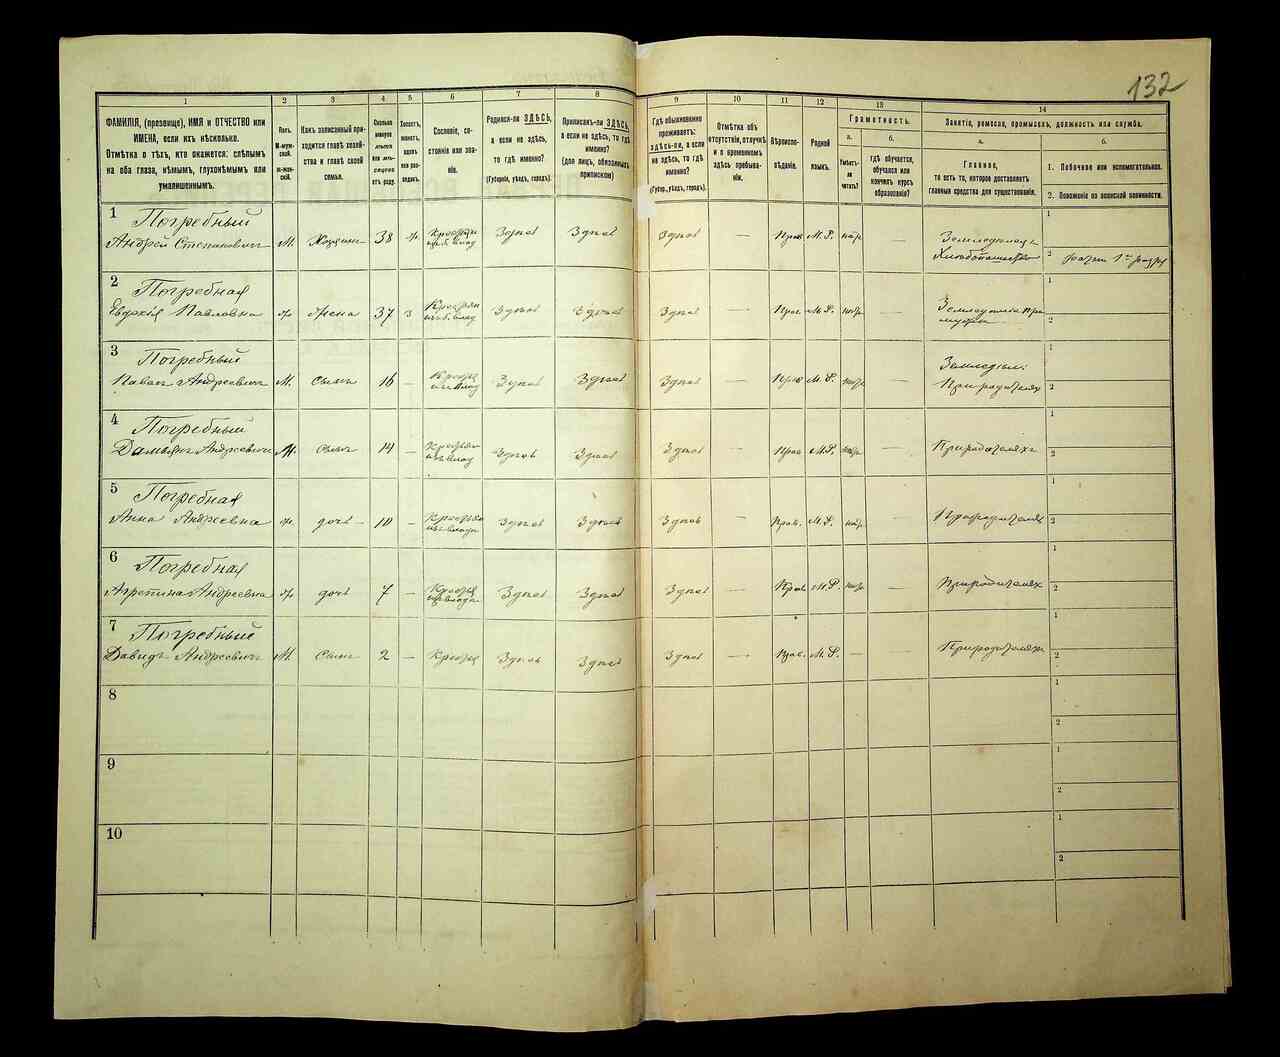 132
1 2 3 4 5 6 7 8 9 10 11 12 13 14
ФАМИЛІЯ, (прозвище), ИМЯ и ОТЧЕСТВО или
ИМЕНА, если ихъ нѣсколько.
Отмѣтка о тѣхъ, кто окажется: слѣпымъ
на оба глаза, нѣмымъ, глухонѣмымъ или
умалишеннымъ.
Полъ.
М-муж-
ской.
ж-жен-
скій.
Какъ записанный при-
ходится главѣ хозяй-
ства и главѣ своей
семьи.
Сколько
минуло
лѣтъ
или мѣ-
сяцевъ
отъ роду.
Холостъ,
женатъ,
вдовъ
или раз-
веденъ.
Сословіе, со-
стояніе или зва-
ніе.
Родился-ли ЗДѢСЬ,
а если не здѣсь,
то гдѣ именно?
(Губернія, уѣздъ, городъ).
Приписанъ-ли ЗДѢСЬ,
а если не здѣсь, то гдѣ
именно?
(для лицъ, обязанныхъ
припиской)
Гдѣ обыкновенно
проживаетъ:
здѣсь-ли, а если
не здѣсь, то гдѣ
именно?
(Губер., уѣздъ, городъ).
Отмѣтка объ
отсутствіи, отлучкѣ
и о временномъ
здѣсь пребыва-
ніи.
Вѣроиспо-
вѣданіе.
Родной
языкъ.
Грамотность.
а. б.
Умѣетъ-
ли
читать?
гдѣ обучается,
обучался или
кончилъ курсъ
образованія?
Занятіе, ремесло, промыселъ, должность или служба.
а. б.
Главное,
то есть то, которое доставляетъ
главныя средства для существованія.
1. Побочное или вспомогательное.
2. Положеніе по воинской повинности.
1 Погребный
Андрей Степановичъ М. Хозяинъ 38 ж Здѣсь Здѣсь Здѣсь — Прав. М. Р. —
Хлѣбопашество
1
2
2 Погребная
Евдокія Павловна ж. Жена 37 з Здѣсь Здѣсь Здѣсь — Прав. М. Р. —
1
2
3 Погребный
Иванъ Андреевичъ М. Сынъ 16 — Здѣсь Здѣсь Здѣсь — Прав М. Р. —
При родителяхъ
1
2
4 Погребный
Дамьянъ Андреевичъ М. Сынъ 14 — Здѣсь Здѣсь Здѣсь — Прав М. Р. — При родителяхъ
1
2
5 Погребная
Анна Андреевна ж. дочь 10 — Здѣсь Здѣсь Здѣсь — Прав. М. Р. — При родителяхъ
1
2
6 Погребная
Агрепина Андреевна ж. дочь 7 — Здѣсь Здѣсь Здѣсь — Прав М. Р. При родителяхъ
1
2
7 Погребный
Давидъ Андреевичъ М. Сынъ 2 — Здѣсь Здѣсь Здѣсь — Прав. М. Р. — — При родителяхъ
1
2
8
1
2
9
1
2
10
1
2